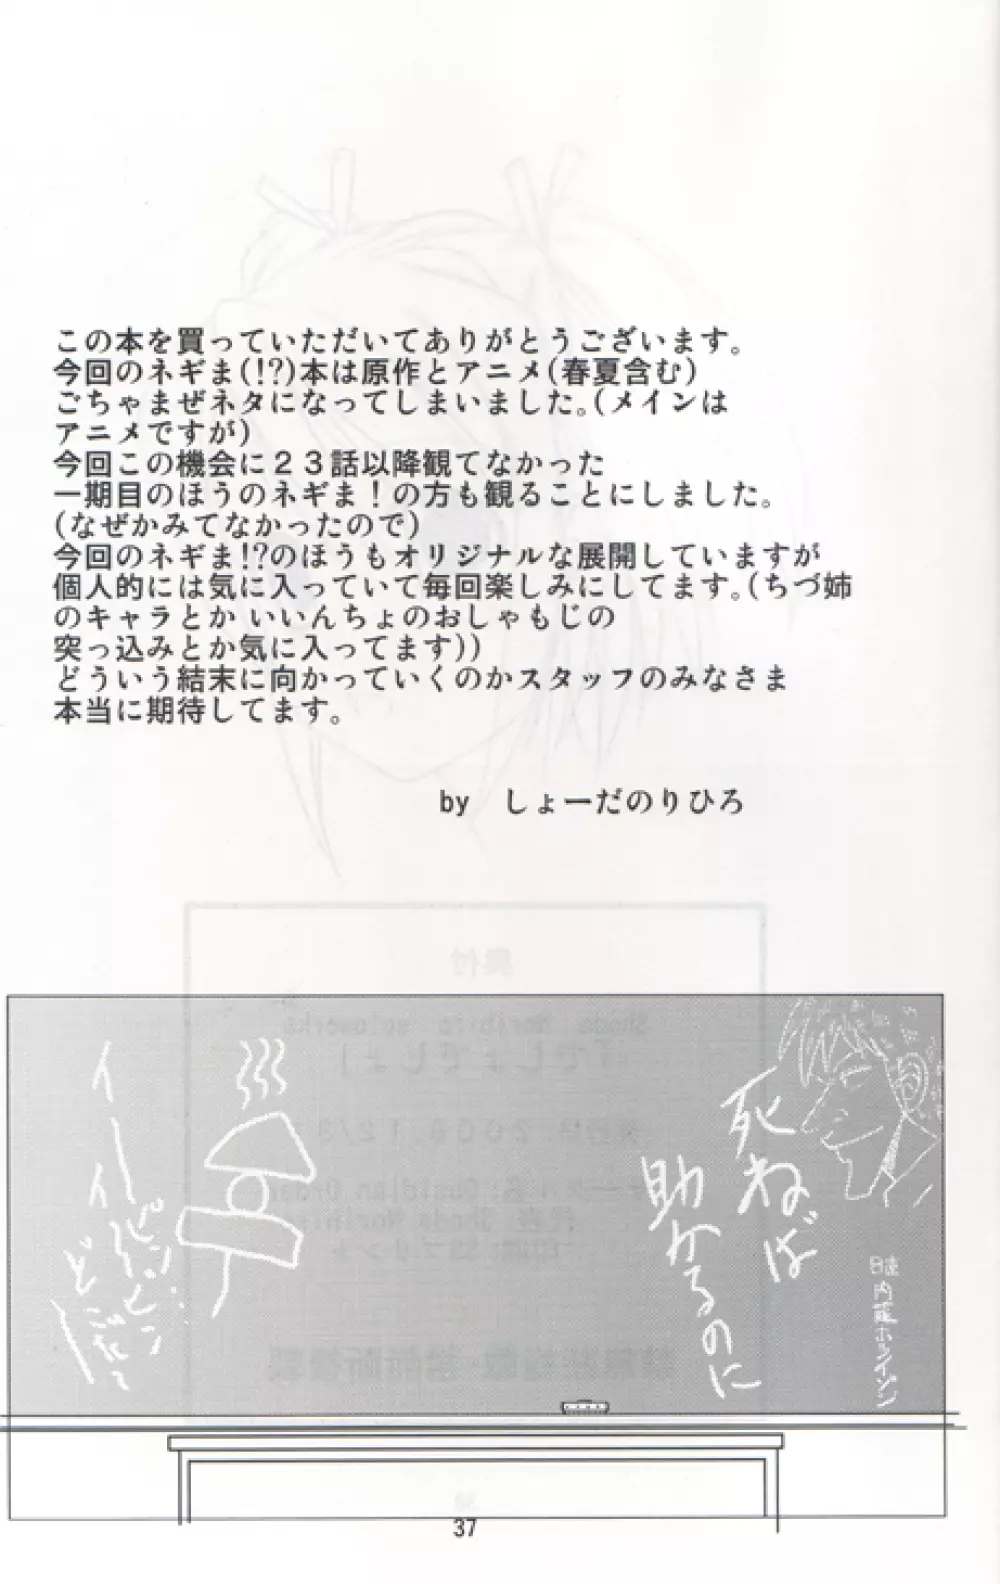 この本を買っていただいてありがとうございます。
今回のネギま(!?)本は原作とアニメ(春夏含む)
ごちゃまぜネタになってしまいました。(メインは
アニメですが)
今回この機会に２３話以降観てなかった
一期目のほうのネギま！の方も観ることにしました。
(なぜかみてなかったので)
今回のネギま!?のほうもオリジナルな展開していますが
個人的には気に入っていて毎回楽しみにしてます。(ちづ姉
のキャラとか いいんちょのおしゃもじの
突っ込みとか気に入ってます))
どういう結末に向かっていくのかスタッフのみなさま
本当に期待してます。
by　しょーだのりひろ
死ねば
助かるのに
内藤ホライゾン
イーイーピンピン
どこだって
37